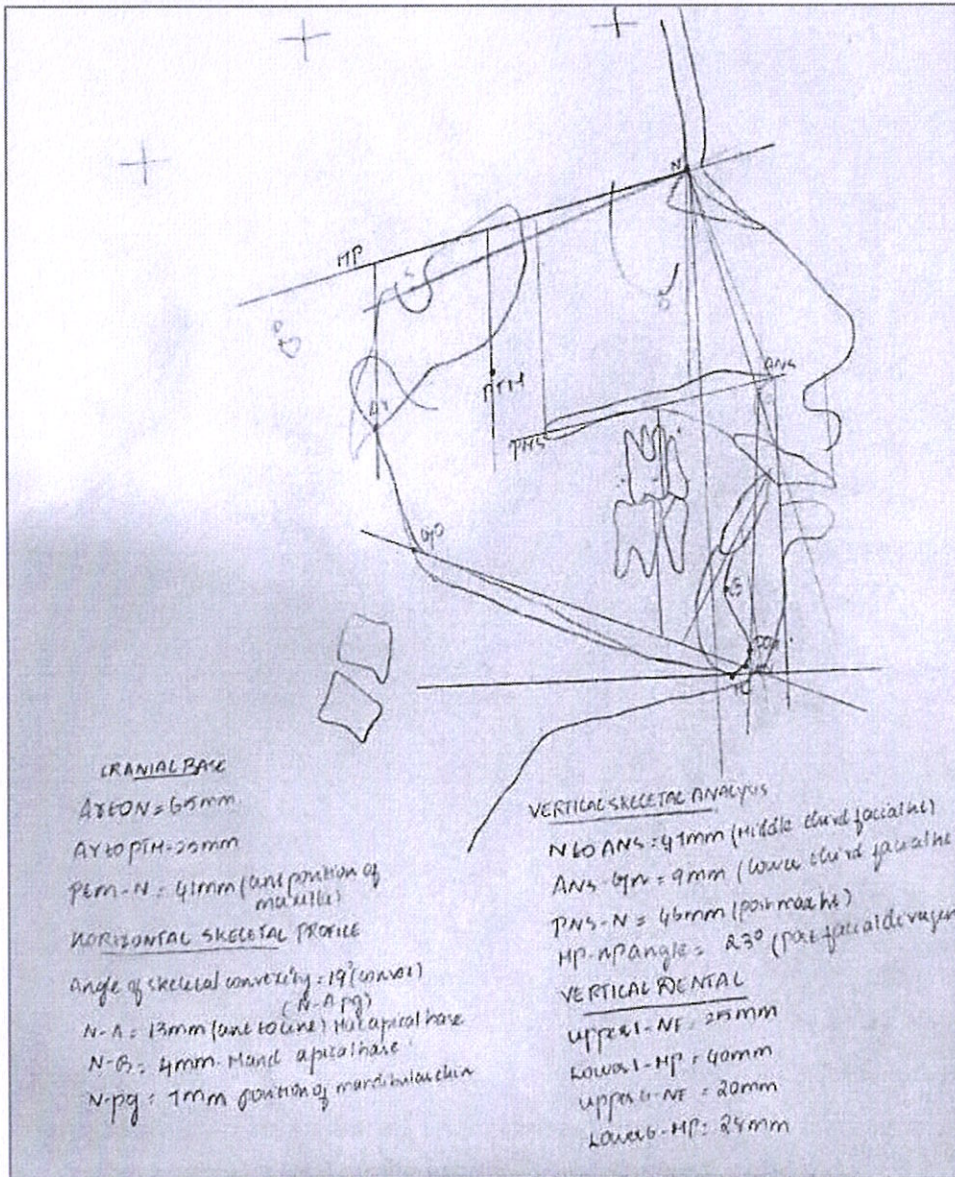 N
HP
S
Or
ANS
Ar
PTM
PNS
GO
B
POG
GN
ME
CRANIAL BASE
Ar to N = 65mm
Ar to PTM = 25mm
Ptm-N = 41mm (ant position of
maxilla)
HORIZONTAL SKELETAL PROFILE
Angle of skeletal convexity = 19° (convex)
(N-A pg)
N-A = 13mm (ant to line) Max apical base
N-B = 4mm Mand apical base
N-pg = 7mm position of mandibular chin
VERTICAL SKELETAL ANALYSIS
N to ANS = 47mm (Middle third facial ht)
ANS-Gn = 9mm (lower third facial ht
PNS-N = 46mm (post max ht)
HP-mp angle = 23° (post facial divergen
VERTICAL DENTAL
upper 1-NF = 25mm
Lower 1-MP = 40mm
upper 6-NF = 20mm
Lower 6-MP = 28mm